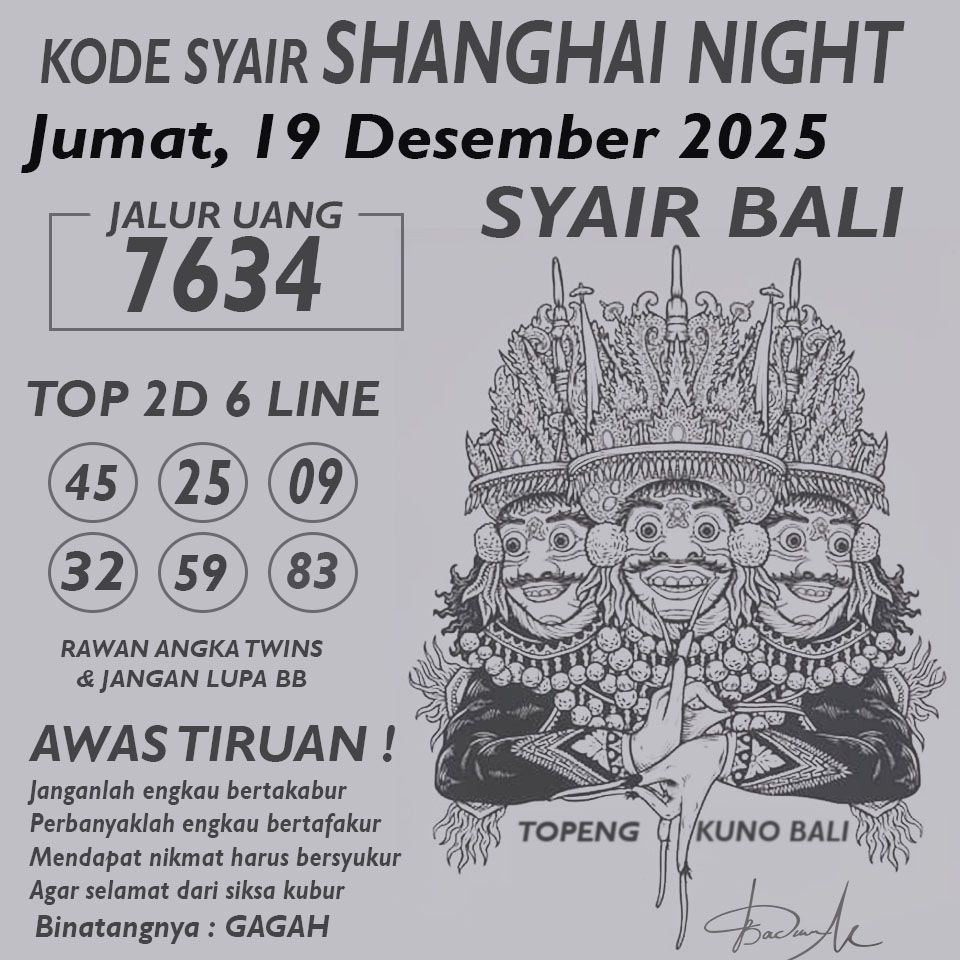 KODE SYAIR SHANGHAI NIGHT
Jumat, 19 Desember 2025
SYAIR BALI
JALUR UANG
7634
TOP 2D 6 LINE
45 25 09
32 59 83
RAWAN ANGKA TWINS
& JANGAN LUPA BB
AWAS TIRUAN !
Janganlah engkau bertakabur
Perbanyaklah engkau bertafakur
Mendapat nikmat harus bersyukur
Agar selamat dari siksa kubur
Binatangnya : GAGAH
TOPENG KUNO BALI